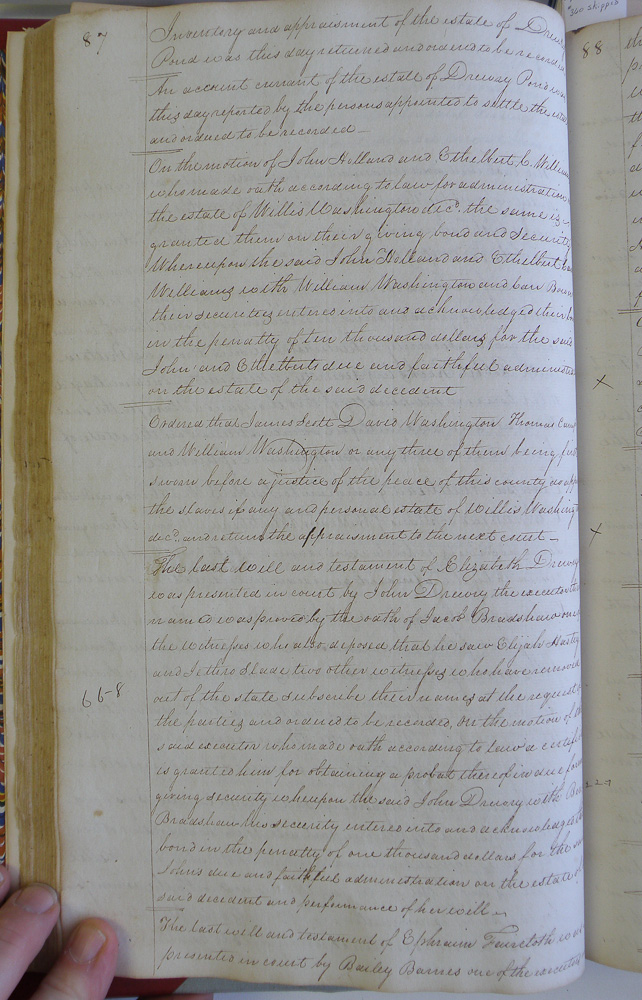 87
Inventory and appraisment of the estate of Drewry
Pond was this day returned and ordered to be recorded
An account currant of the estate of Drewry Pond was
this day reported by the persons appointed to settle the
and ordered to be recorded —
On the motion of John Holland and Ethelbert C. William
who made oath according to law for administration
the estate of Willis Washington decd. the same is
granted them on their giving bond and security
Whereupon the said John Holland and Ethelbert
Williams with William Washington and
their securities entered into and acknowledged their
in the penalty of ten thousand dollars for the said
John and Ethelberts due and faithful administra
on the estate of the said decedent
Ordered that James Scott David Washington Thomas
and William Washington or any three of them being first
sworn before a justice of the peace of this county do app
the slaves if any and personal estate of Willis Washing
decd. and return the appraisment to the next court —
The last will and testament of Elizabeth Drewry
was presented in court by John Drewry the executor
named was proved by the oath of Jacob Bradshaw one
the witnesses who also deposed that he saw Elijah
and Jethro Slade two other witnesses who have removed
66-8
out of the state subscribe their names at the request
the parties and ordered to be recorded, On the motion of
said executor who made oath according to law a certific
is granted him for obtaining a probat thereof in due form
giving security whereupon the said John Drewry with
Bradshaw his security entered into and acknowledged
bond in the penalty of one thousand dollars for the
John's due and faithful administration on the estate of
said decedent and performance of her will —
The last will and testament of Ephraim Faircloth was
presented in court by Bailey Barnes one of the executors
88